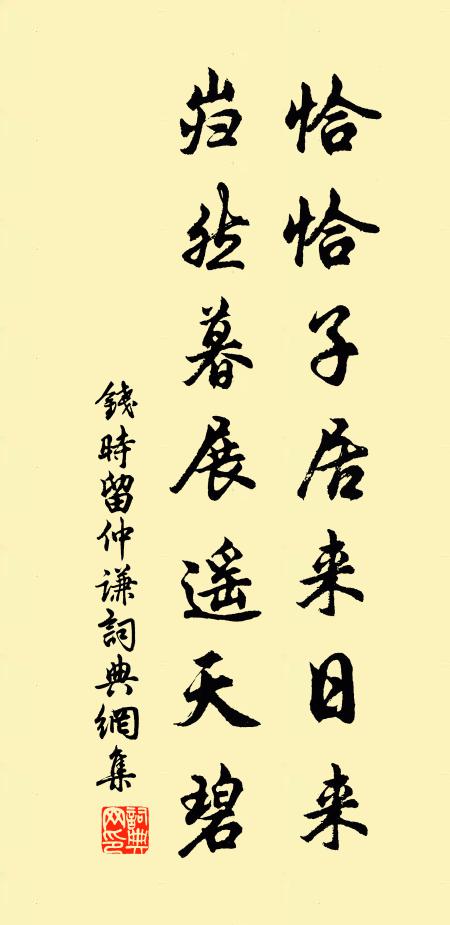 恰恰子居来日来
岿然暮展遥天碧
錢時留仲謙詞典網集
詞典网印